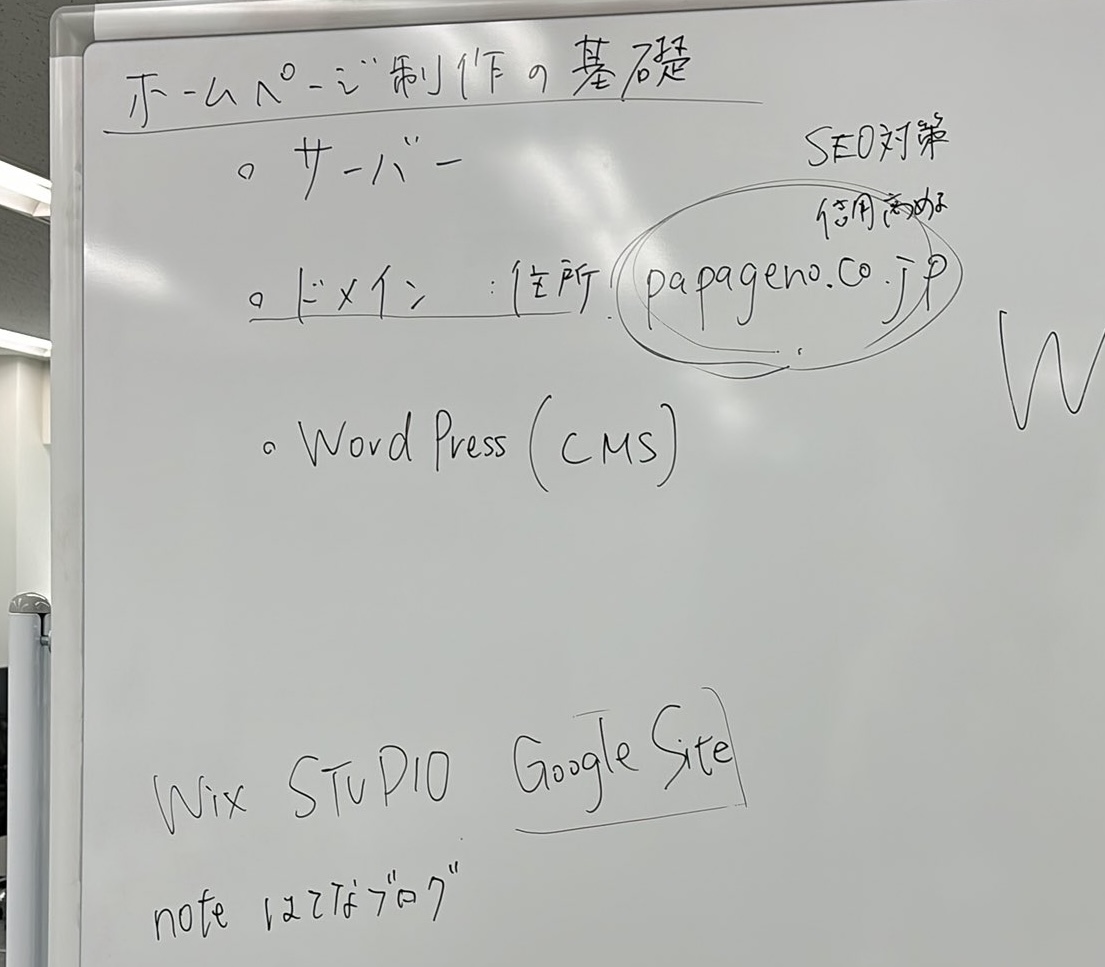 ホームページ制作の基礎
。サーバー
SEO対策
信用高める
。ドメイン :住所 papageno.co.jp
W
。WordPress (CMS)
Wix STUDIO Google Site
note はてなブログ